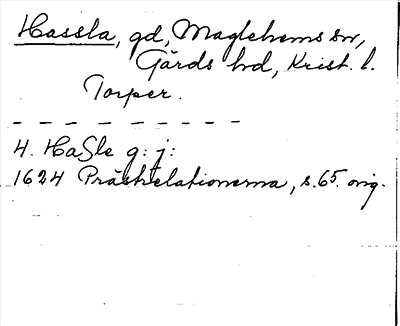 Hassla, gd, Maglehems sn,
Gärds hd, Krist. l.
Torper.
4. Haſle g: j:
1624 Prästrelationerna, s. 65. orig.